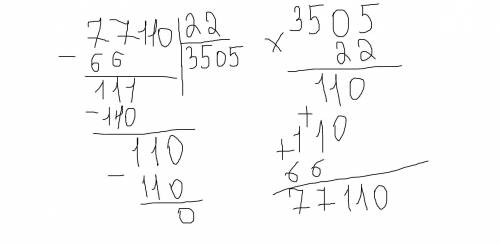 77110 22
- 66 3505
111
- 110
110
- 110
0
3505
x 22
110
+
+ 110
66
77110